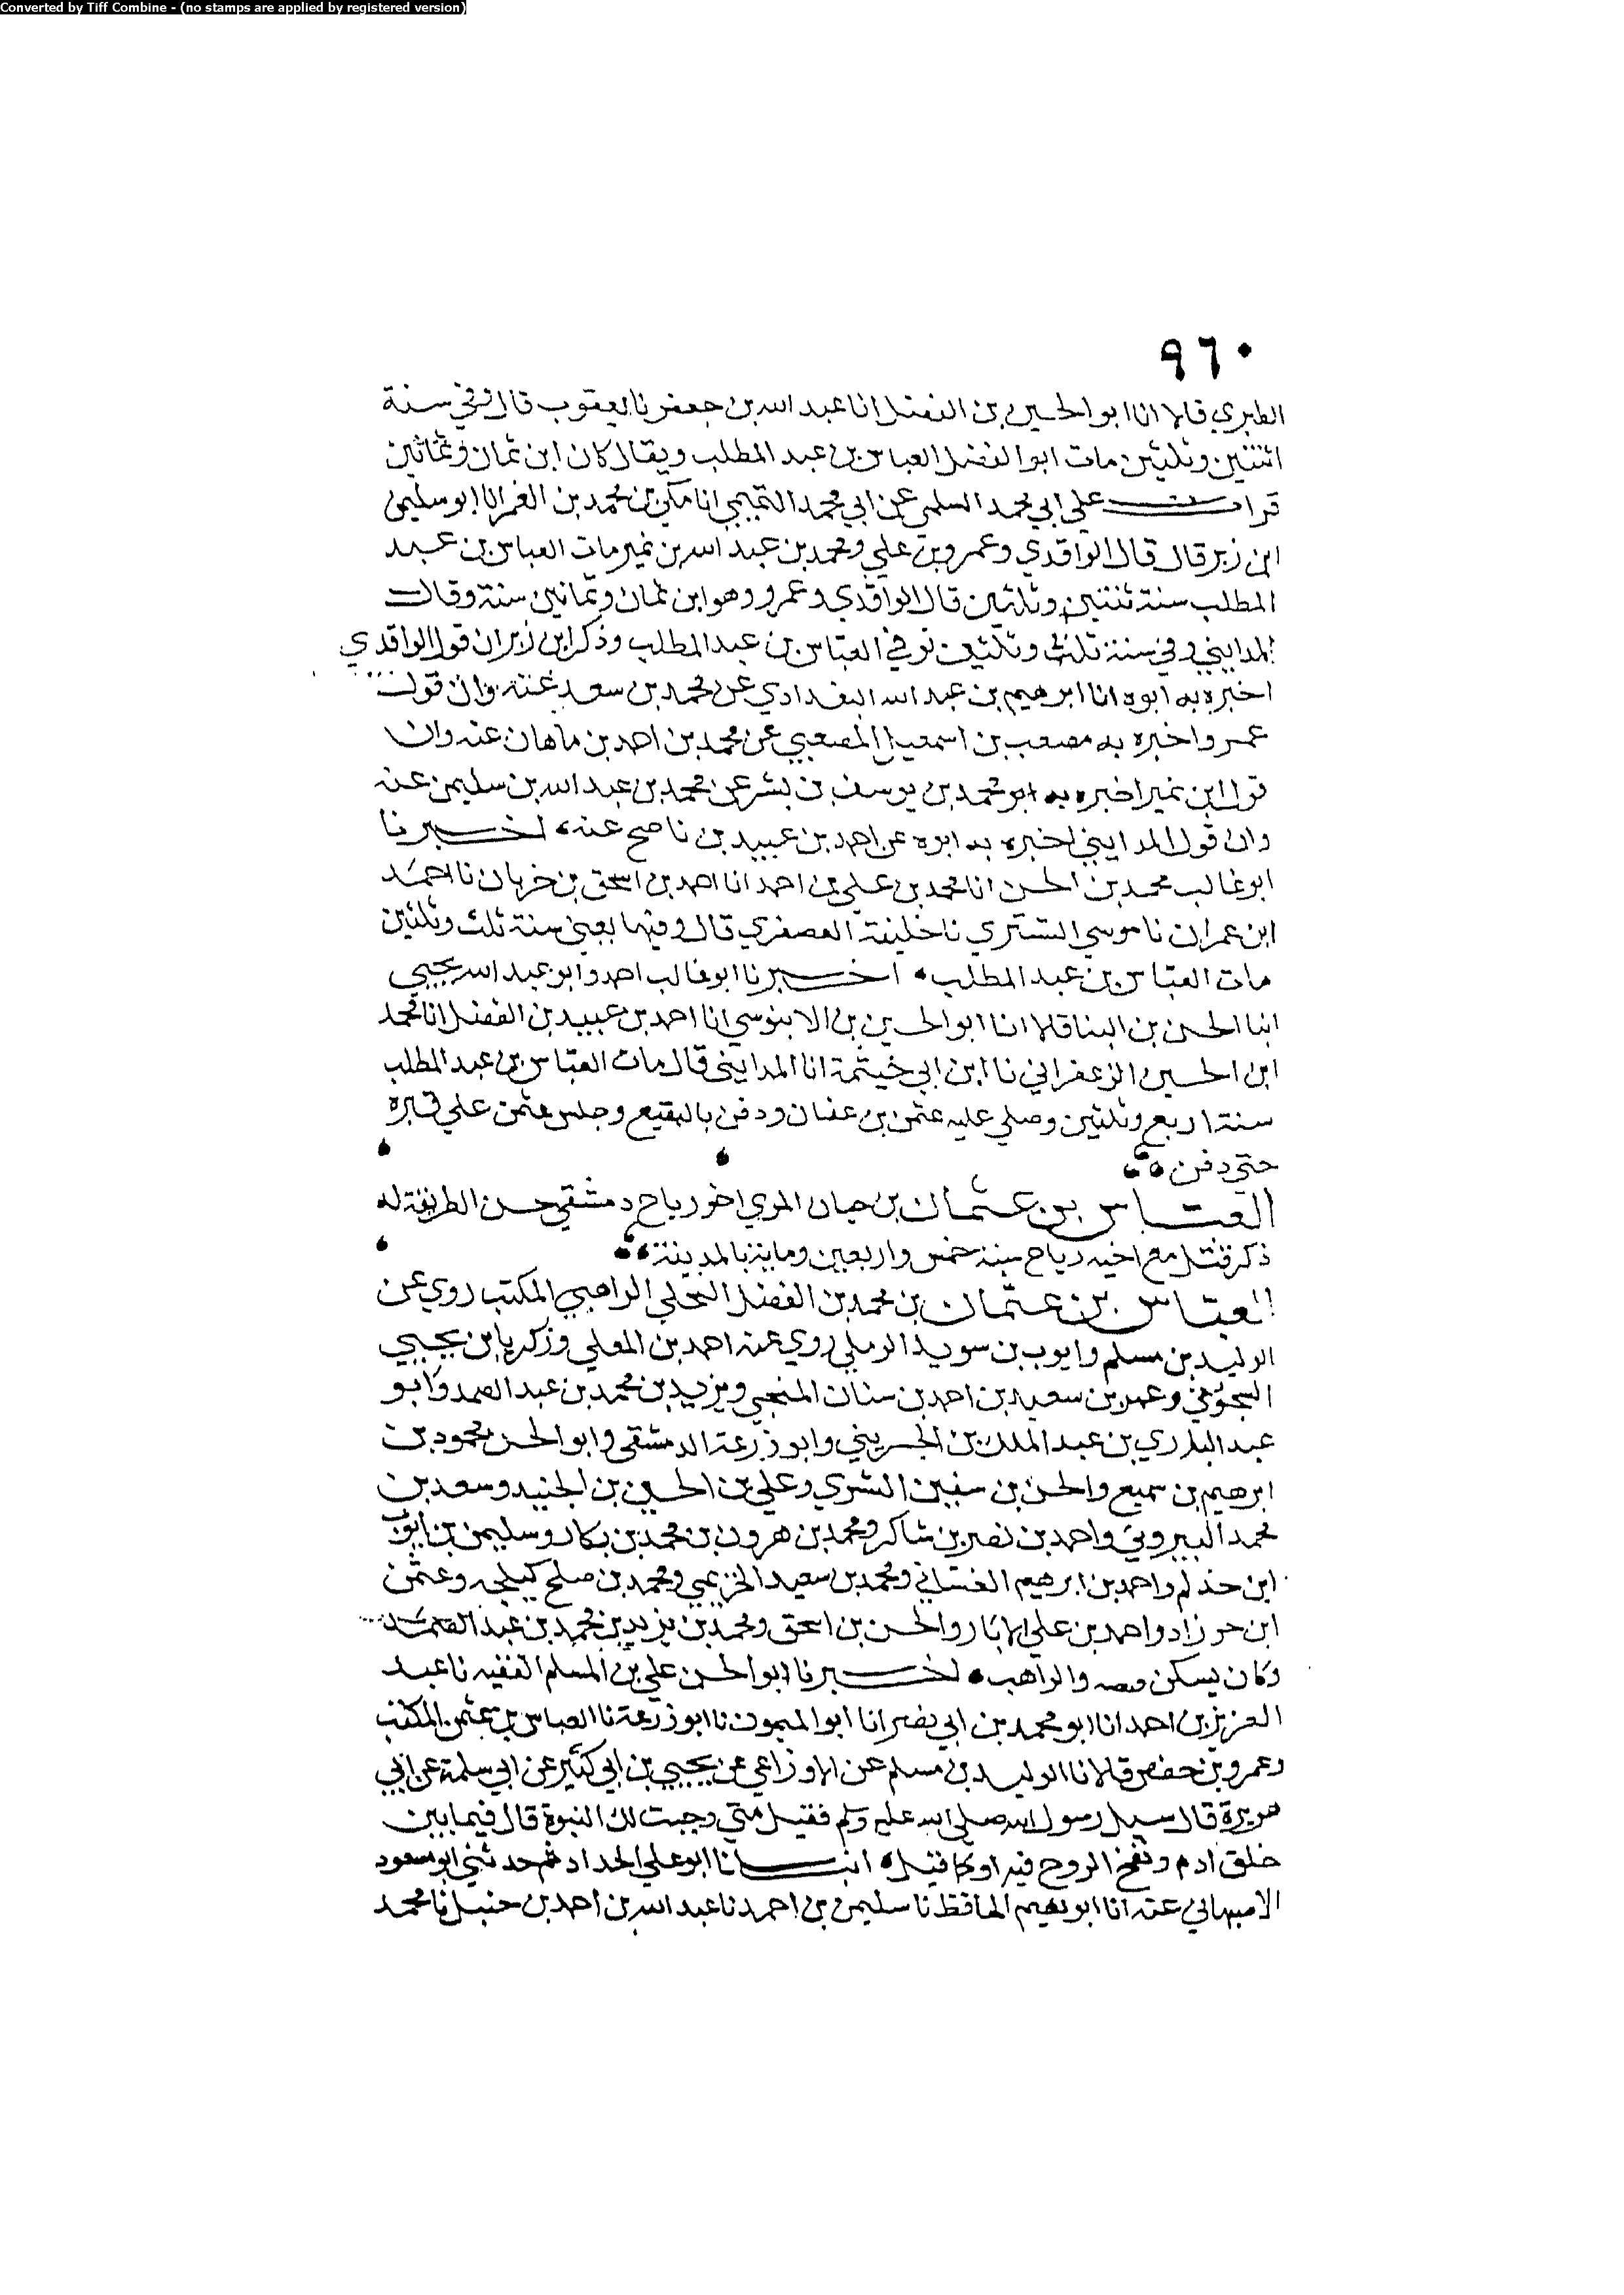 Converted by Tiff Combine - (no stamps are applied by registered version)
٩٦٠
الطبري قالا انا ابو الحسين بن الفضل انا عبد الله بن جعفر نا يعقوب قال وفي سنة
اثنتين وثلثين مات ابو الفضل العباس بن عبد المطلب ويقال كان ابن ثمان وثمانين
قرات علي ابي محمد السلمي عن ابي محمد التميمي انا مكي بن محمد بن الغمر انا ابو سليمن
ابن زبر قال قال الواقدي وعمرو بن علي ومحمد بن عبد الله بن نمير مات العباس بن عبد
المطلب سنة ثنتين وثلثين قال الواقدي وعمرو وهو ابن ثمان وثمانين سنة وقال
المدايني وفي سنة ثلث وثلثين توفي العباس بن عبد المطلب وذكر ابن زبر ان قول الواقدي
اخبره به ابوه انا ابرهيم بن عبد الله البغدادي عن محمد بن سعد عنه وان قول
عمرو اخبره به مصعب بن اسمعيل المصعبي عن محمد بن احمد بن ماهان عنه وان
قول ابن نمير اخبره به ابو محمد بن يوسف بن بشر عن محمد بن عبد الله بن سليمن عنه
وان قول المدايني اخبره به ابوه عن احمد بن عبيد بن ناصح عنه اخبرنا
ابو غالب محمد بن الحسن انا محمد بن علي بن احمد انا احمد بن اسحق بن خربان نا احمد
ابن عمران نا موسي التستري نا خليفة العصفري قال وفيها يعني سنة ثلث وثلثين
مات العباس بن عبد المطلب اخبرنا ابو غالب احمد وابو عبد الله يحيي
ابنا الحسن بن البنا قالا انا ابو الحسين بن الابنوسي انا احمد بن عبيد بن الفضل انا محمد
ابن الحسين الزعفراني نا ابن ابي خيثمة انا المدايني قال مات العباس بن عبد المطلب
سنة اربع وثلثين وصلي عليه عثمن بن عفان ودفن بالبقيع وجلس عثمن علي قبره
حتي دفن
العباس بن عثمان بن حيان المري اخو رياح دمشقي حسن الطريقة له
ذكر قتل مع اخيه رياح سنة خمس واربعين وماية بالمدينة
العباس بن عثمان بن محمد بن الفضل البجلي الراهبي المكتب روي عن
الوليد بن مسلم وايوب بن سويد الرملي روي عنه احمد بن المعلي وزكريا بن يحيي
السجزي وعمر بن سعيد بن احمد بن سنان المنبجي ويزيد بن محمد بن عبد الصمد وابو
عبد الملك بن وابو زرعة الدمشقي وابو الحسن محمود بن
ابرهيم بن سميع والحسن بن سفين النسوي وعلي بن الحسين بن الجنيد وسعد بن
محمد البيروتي واحمد بن نصر بن شاكر ومحمد بن هرون بن محمد بن بكار وسليمن بن ايوب
ابن حذلم واحمد بن ابرهيم الغساني ومحمد بن سعيد الخريمي ومحمد بن صلح كيلجه وعثمن
ابن خرزاد واحمد بن علي الابار والحسن بن اسحق ومحمد بن يزيد بن محمد بن عبد الصمد
وكان يسكن الراهب اخبرنا ابو الحسن علي بن المسلم الفقيه نا عبد
العزيز بن احمد انا ابو محمد بن ابي نصر انا ابو الميمون نا ابو زرعة نا العباس بن عثمن المكتب
وعمرو بن حفص قالا نا الوليد بن مسلم عن الاوزاعي عن يحيي بن ابي كثير عن ابي سلمة عن ابي
هريرة قال سيل رسول الله صلي الله عليه وسلم فقيل متي وجبت لك النبوة قال فيما بين
خلق ادم ونفخ الروح فيه او كما قيل انبانا ابو علي الحداد ثم حدثني ابو مسعود
الاصبهاني عنه انا ابو نعيم الحافظ نا سليمن بن احمد نا عبد الله بن احمد بن حنبل نا محمد